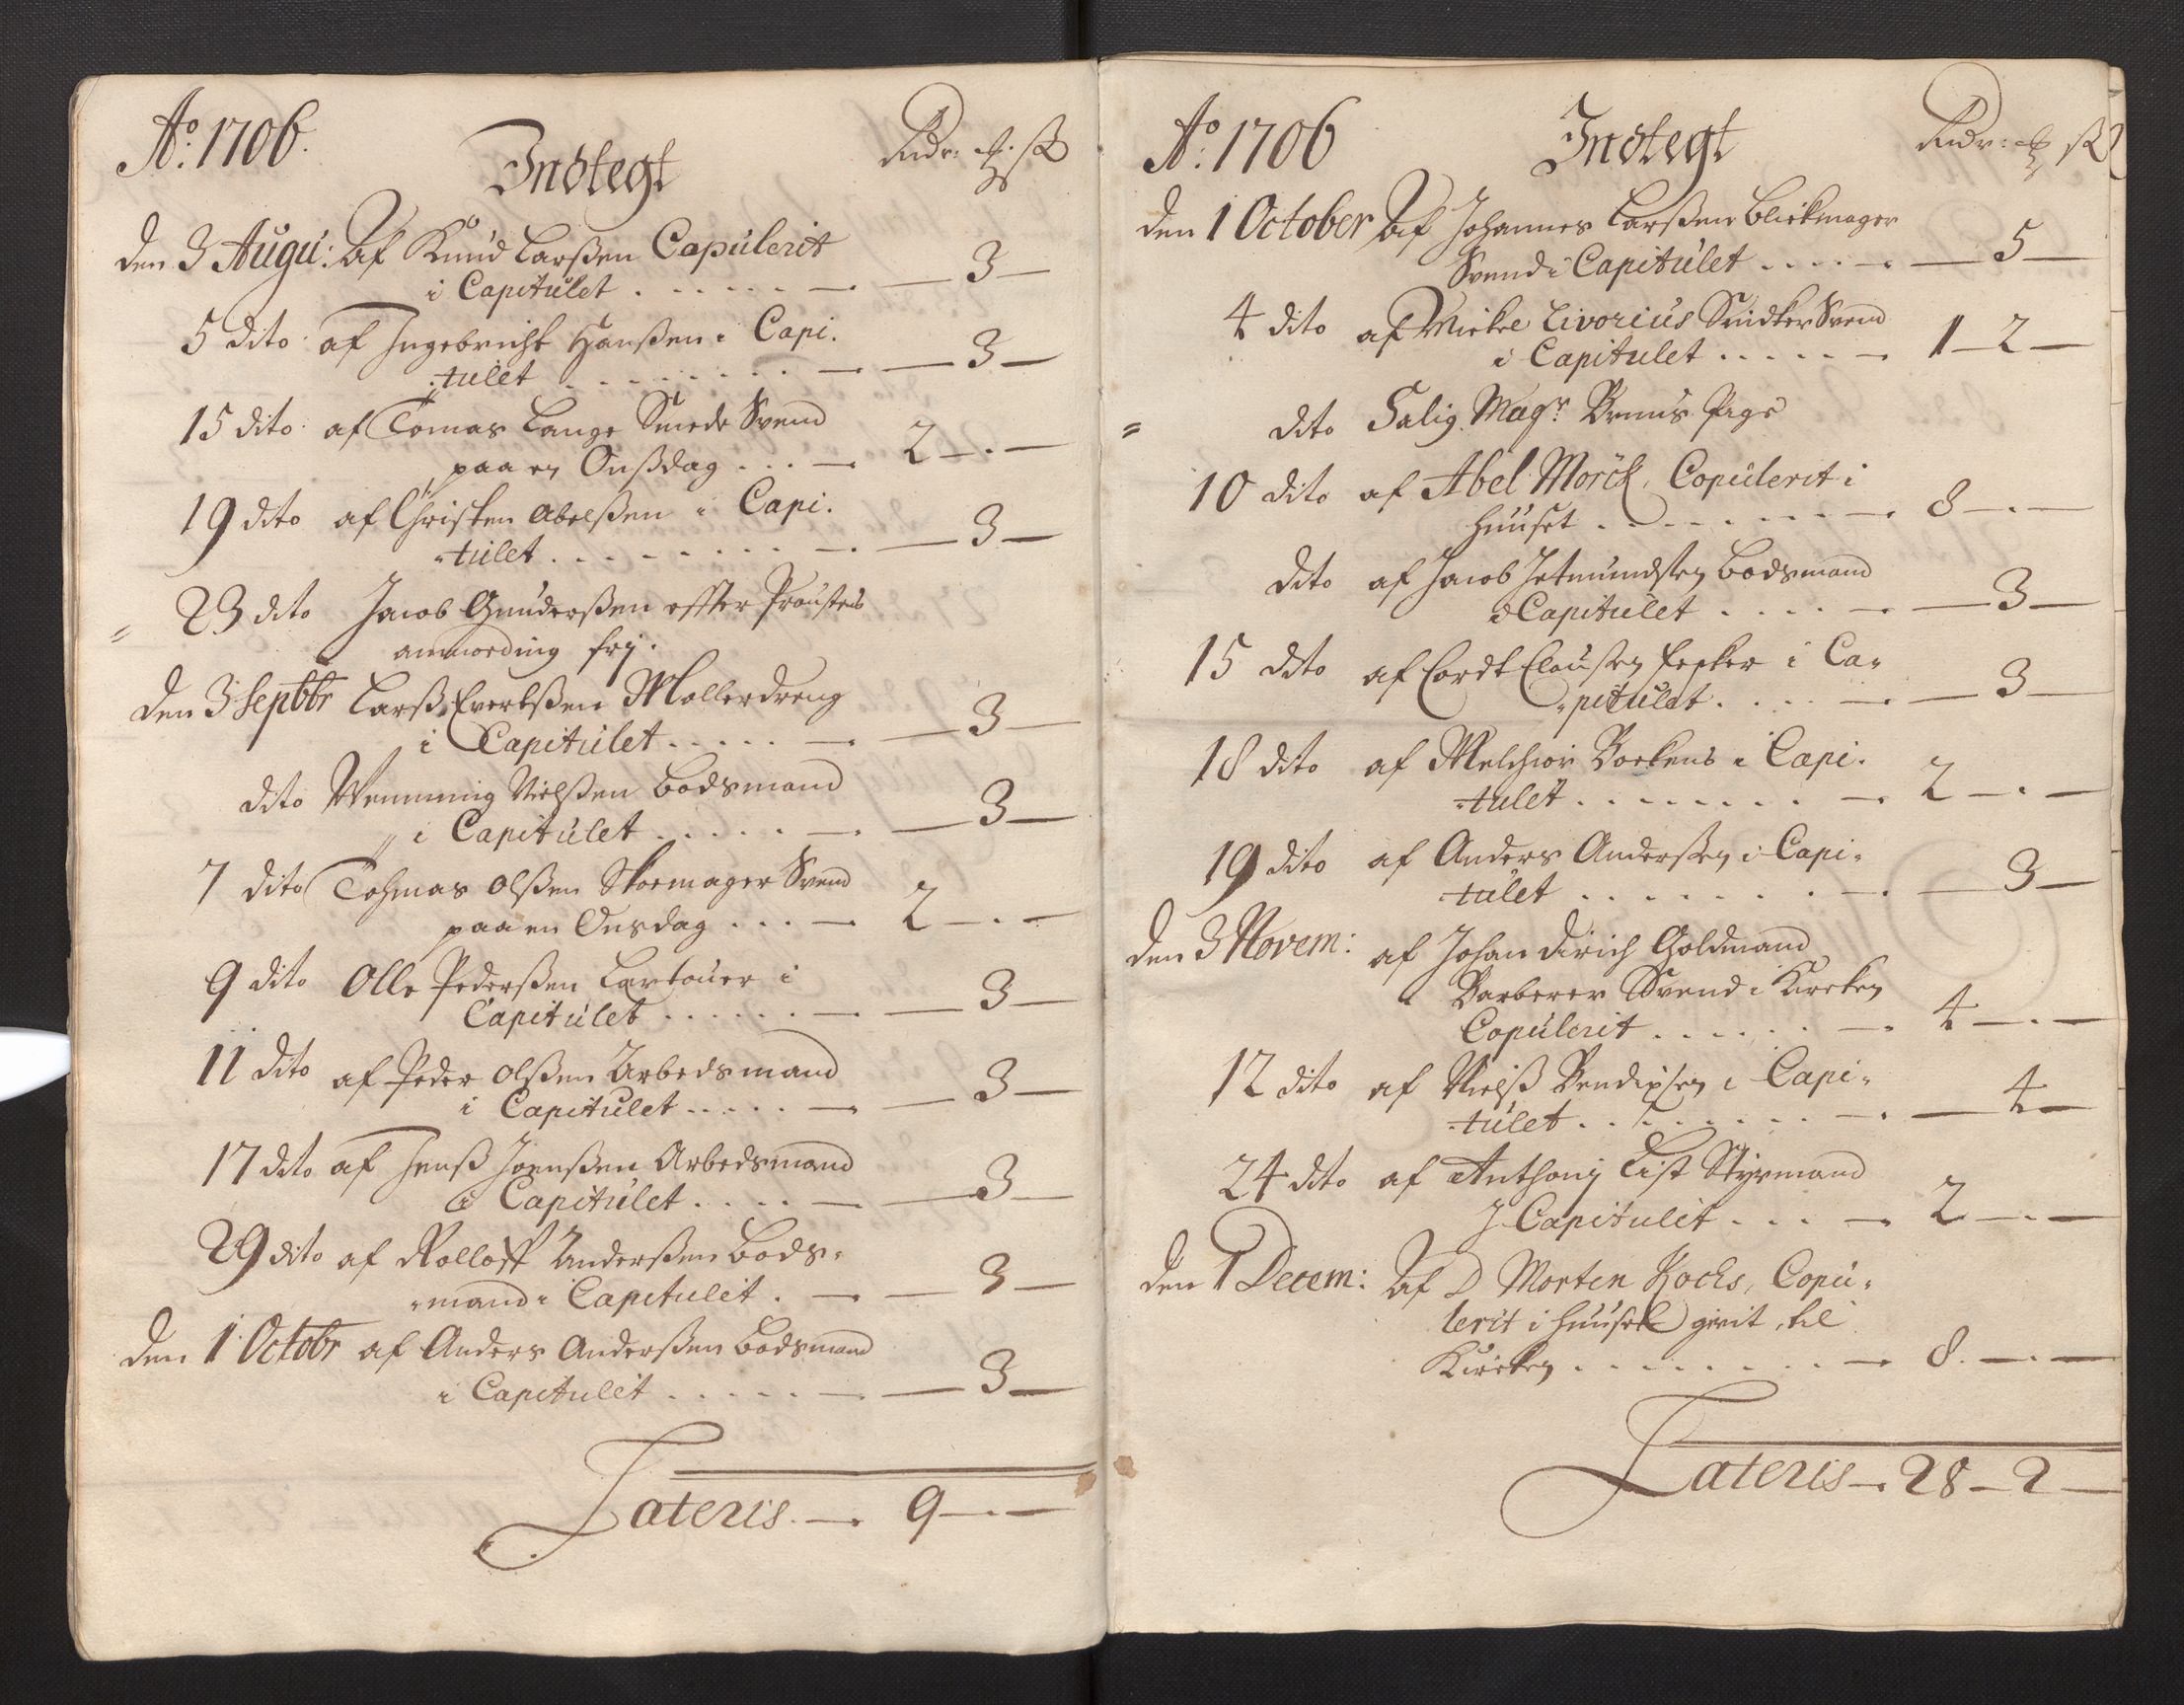 Ao: 1706.
Indtegt
Rdr: ꝶ. sk
den 3 Augu: Af Knud Larßen Capulerit
i Capitulet . . . . . . — 3 —
5 dito af Ingebricht Hanßen i Capi.
tulet . . . . . . . — 3 —
15 dito af Tomas Lange Smede Svend
paa en Onßdag . . . — 2 — . —
19 dito af Christen Abelßen i Capi.
tulet . . . . . . . — 3 —
= 23 dito Jacob Gunderßen effter Proustens
anmording frj.
den 3 Septbr Larß Evertßen Møllerdreng
i Capitulet . . . . . — 3 —
dito Wemming Nielßen Bodsmand
i Capitulet . . . . . — 3 —
7 dito Tohmas Olßen Skoemager Svend
paa en Onsdag . . . — 2 — . —
9 dito Olle Pederßen i
Capitulet . . . . . . — 3 —
11 dito af Peder Olßen Arbedsmand
i Capitulet . . . . . — 3 —
17 dito af Jenß Joenßen Arbedsmand
i Capitulet . . . . — 3 —
29 dito af Rolloff Anderßen Bods-
mand i Capitulet . — 3 —
den 1 Octobr af Anders Anderßen Bodsmand
i Capitulet . . . . . — 3 —
Lateris — 9 — . —
Ao: 1706
Indtegt
Rdr: ꝶ sk
den 1 October Af Johannes Larßen Blickmager
Svend i Capitulet . . . . — 5 —
4 dito af Mickel Livorius Snidker Svend
i Capitulet . . . . . — 1 — 2 —
= dito Salig Magr. Pige
10 dito af Abel Mörch, Copulerit i
huuset . . . . . . . — 8 — . —
dito af Jacob Jetmundsen Bodsmand
i Capitulet . . . . — 3 —
15 dito af Cordt Clausen i Ca-
pitulet . . . . — 3 —
18 dito af Melchior i Capi.
tulet . . . . . . . — 2 — . —
19 dito af Anders Anderßen i Capi-
tulet . . . . . . . — 3 —
den 3 Novem: af Johan Dirich Goldmand
Barberer Svend i Kircken
Copulerit . . . . . . — 4 — . —
12 dito af Nielß Bendixsen i Capi-
tulet . . . . . . . — 4 —
24 dito af Anthonj List Styrmand
J Capitulit . . . — 2 — . —
den 1 Decem: Af D Morten Kochs, Copu-
lerit i huuset givit til
Kircken . . . . . . . . — 8. — . —
Lateris — 28 — 2 —